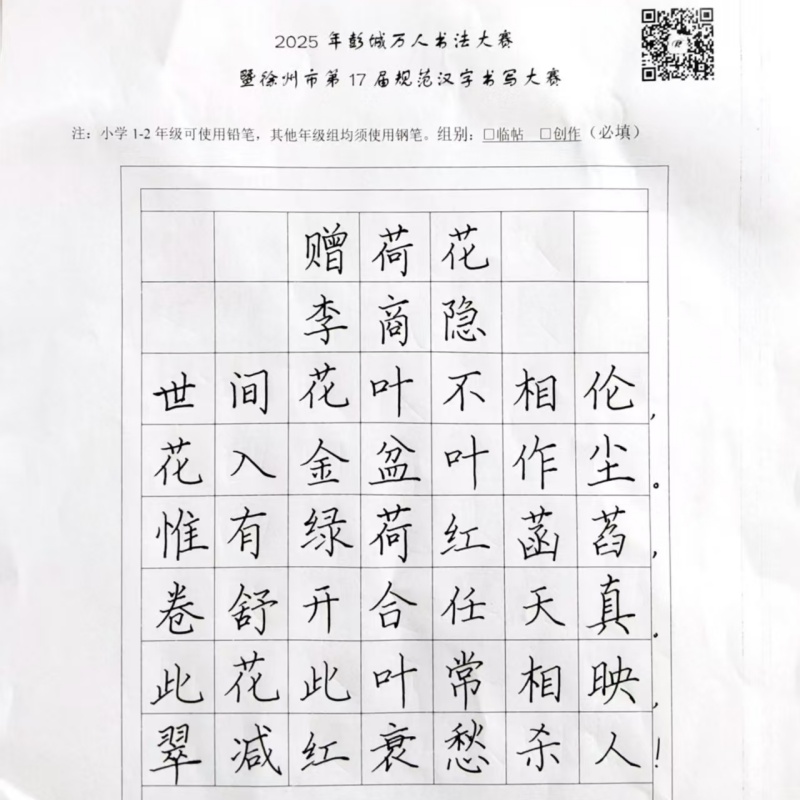 2025 年彭城万人书法大赛
暨徐州市第 17 届规范汉字书写大赛
注：小学 1-2 年级可使用铅笔，其他年级组均须使用钢笔。组别：□临帖 □创作（必填）
赠荷花
李商隐
世间花叶不相伦，
花入金盆叶作尘。
惟有绿荷红菡萏，
卷舒开合任天真。
此花此叶常相映，
翠减红衰愁杀人！